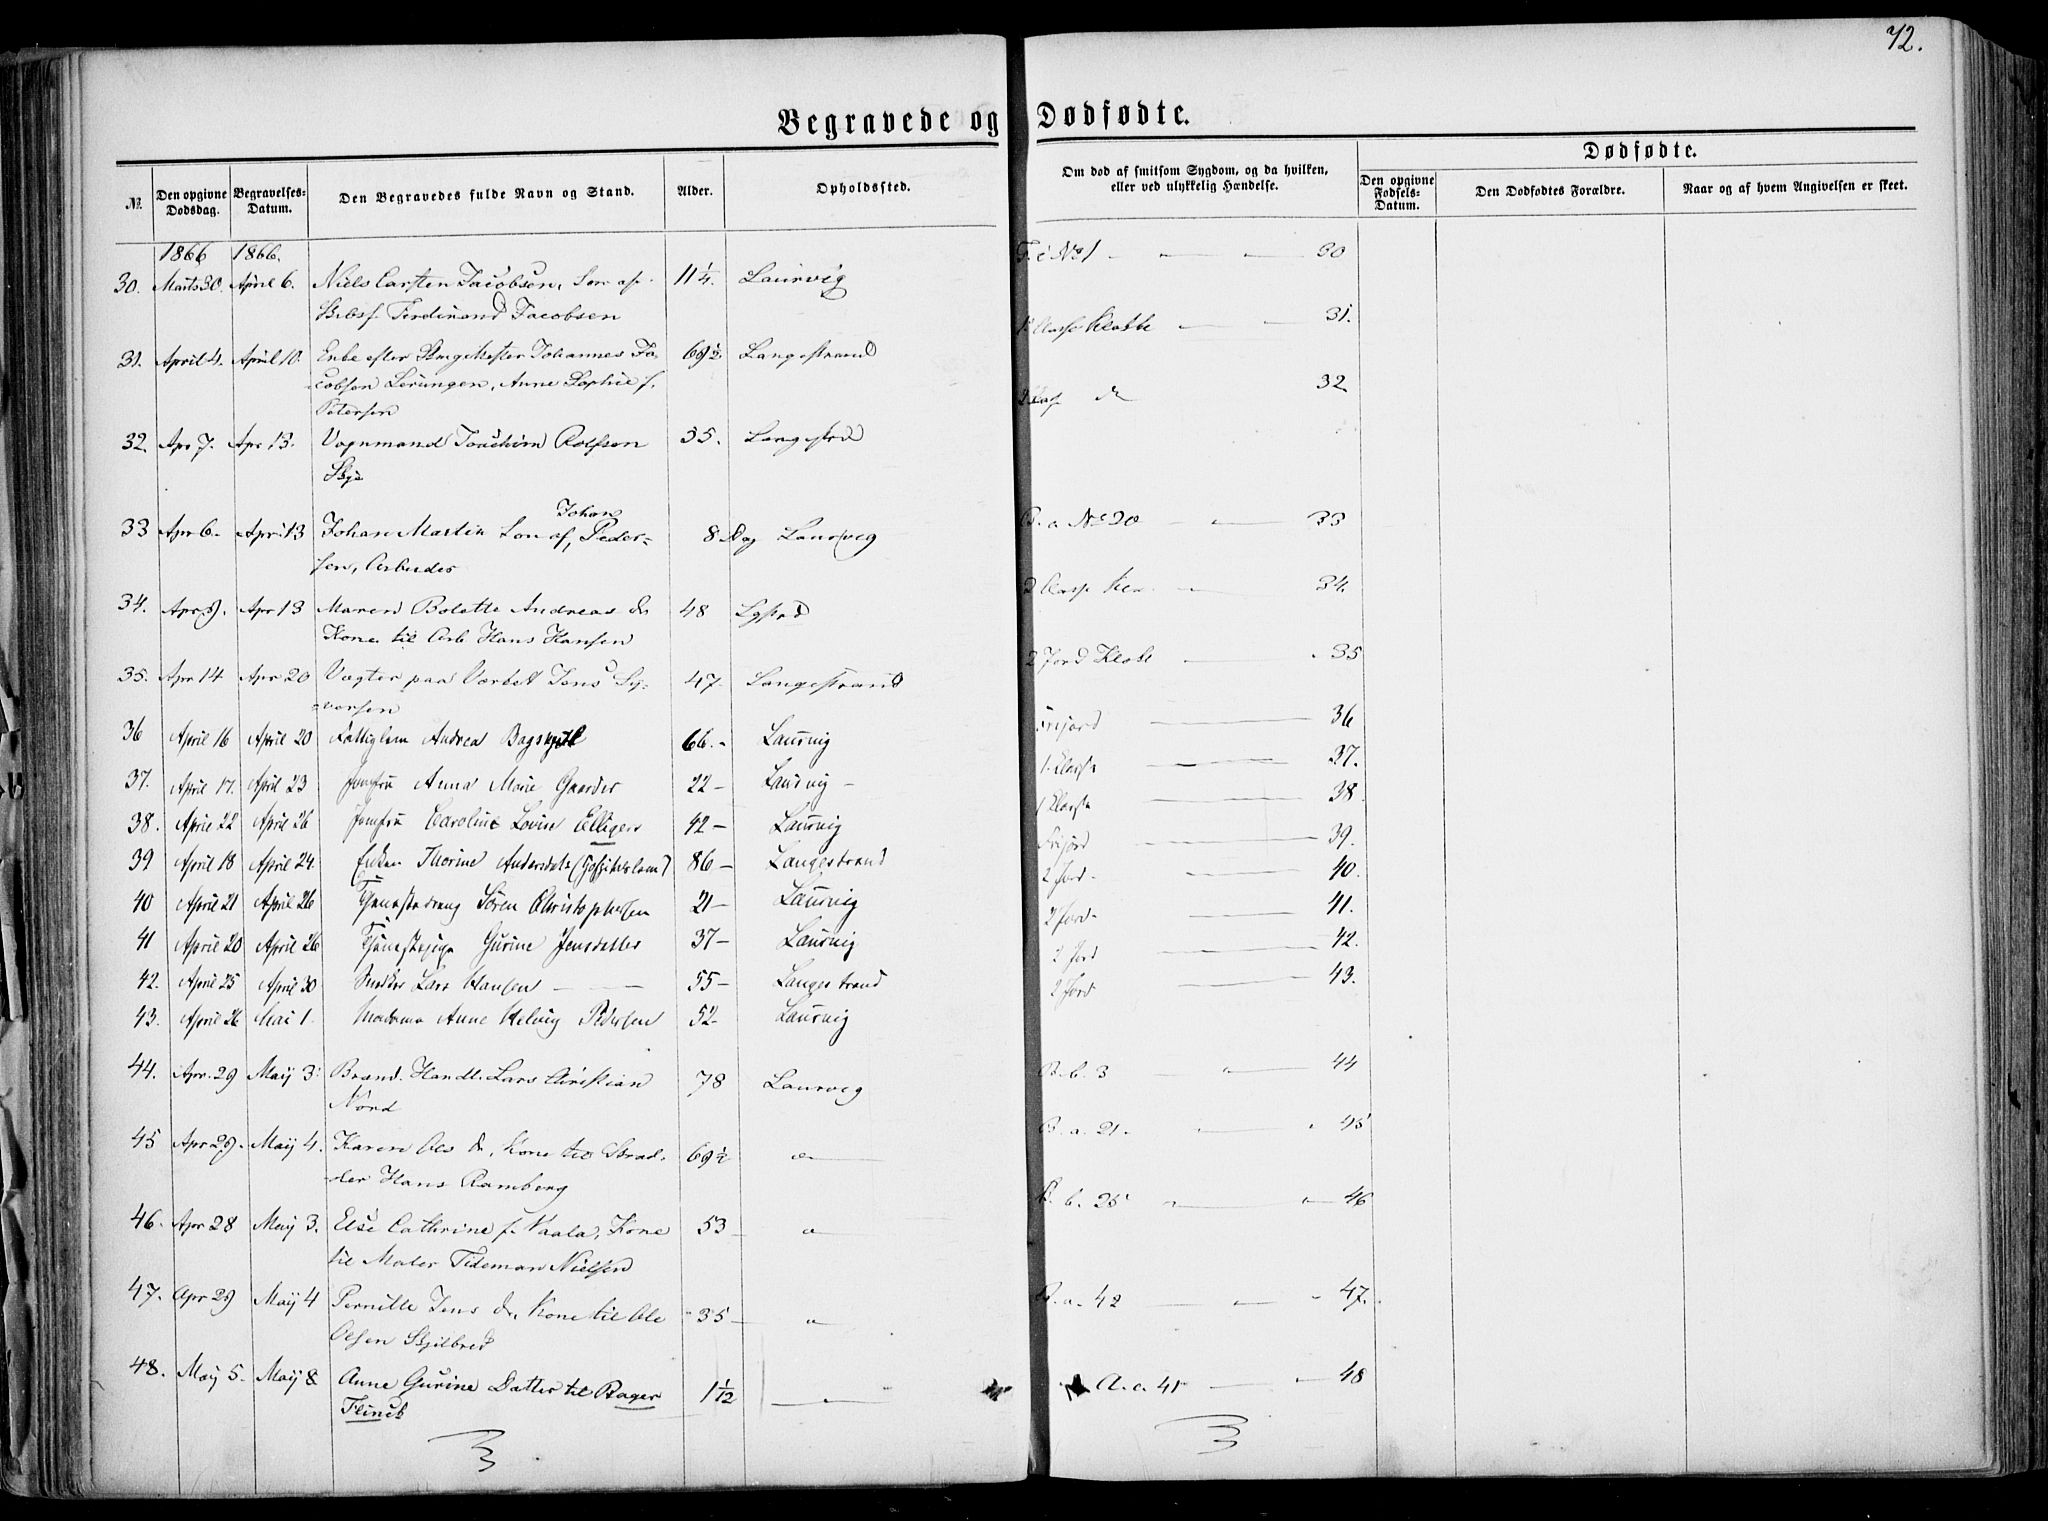 72.
Begravede og Dødfødte.
№ Den opgivne Dødsdag. Begravelses-Datum. Den Begravedes fulde Navn og Stand. Alder. Opholdssted.
Om død af smitsom Sygdom, og da hvilken, eller ved ulykkelig Hændelse.
Dødfødte.
Den opgivne Fødsels-Datum. Den Dødfødtes Forældre. Naar og af hvem Angivelsen er skeet.
1866 1866.
30. Marts 30. April 6. Niels Carsten Jacobsen, Søn af 11 1/4. Laurvig
Ferdinand Jacobsen
31. April 4. April 10. Enke efter Johannes Ja-
cobsen Lerungen, Anne Sophie f.
Petersen 69 1/2 Langestrand
32. Apr 7. Apr 13. Vognmand Joachim Rolfsen 35. Langestrd
33 Apr 6. Apr. 13 Johan Martin Søn af Johan Peder-
sen, Arbeider 8 Dag Laurvig
34. Apr 9. Apr 13 Maren Bolette Andreas dr 48
Kone til Arb Hans Hansen
35. Apr 14 Apr 20 Vægter paa Værket Jens Sy-
versen 47. Langestrand
36 April 16 April 20 Fattiglem Andrea 66. Laurvig
37. April 17. April 23 Jomfru Anna Marie Gaarder 22 Laurvig
38. April 22 April 26 Jomfru Caroline Lovise Elligers 42 Laurvig
39 April 18 April 24 Enken Thorine Andersdatr (Hospitalslem) 86 Langestrand
40 April 21 April 26 Tjenestedreng Sören Christophersen 21 Laurvig
41 April 20 April 26 Tjenestepige Gurine Jensdatter 37 Laurvig
42. April 25 April 30 Snedker Lars Hansen 55 Langestrand
43. April 26 Mai 1. Madame Anne Helvig Pedersen 52 Laurvig
44. Apr. 29 Maij 3. Brænd. Handl. Lars Christian
Nord 78 Laurvig
45 Apr 29. Maij 4. Karen Ols dr, Kone til
Hans Ramberg 69 1/2 "
46. Apr 28 Maij 3. Else Cathrine f. Vaala, Kone
til Maler Tideman Nielsen 53 "
47. Apr 29 Maij 4 Pernille Jens dr, Kone til Ole
Olsen Skjelbred 35 "
48. Maij 5. Maij 8 Anne Gurine Datter til Bager
Flindt 1 1/12 "
F. c No 1 30
1 Classe Kl 31.
2 Clas 32
B. a No 20 33
2 Classe 34.
2 Jord 35
Frijord 36
1. Classe 37.
1 Classe 38
Frijord 39.
2 Jord. 40.
2 Jord. 41.
2 Jord 42.
2 Jord 43.
B. b. 3 44
B. a. 21. 45
B. b. 25 46
B. a. 42 47.
A. c. 41 48